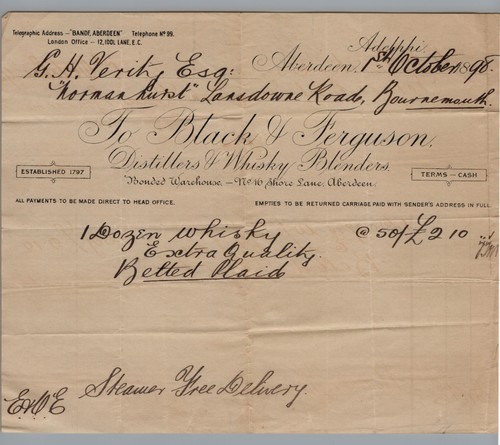 Telegraphic Address – "BANDF, ABERDEEN" Telephone No 99.
London Office – 12, IDOL LANE, E.C.
Adelphi,
Aberdeen, 1st October 1898.
G. H. Verit, Esq:
"Normanhurst" Lansdowne Road, Bournemouth.
To Black & Ferguson.
Distillers & Whisky Blenders.
ESTABLISHED 1797
TERMS – CASH
Bonded Warehouse. – No 16 Shore Lane, Aberdeen.
ALL PAYMENTS TO BE MADE DIRECT TO HEAD OFFICE.
EMPTIES TO BE RETURNED CARRIAGE PAID WITH SENDER'S ADDRESS IN FULL.
1 Dozen Whisky @ 50/ £2 10
Extra Quality.
Belted Plaid
Steamer Free Delivery.
E & O E